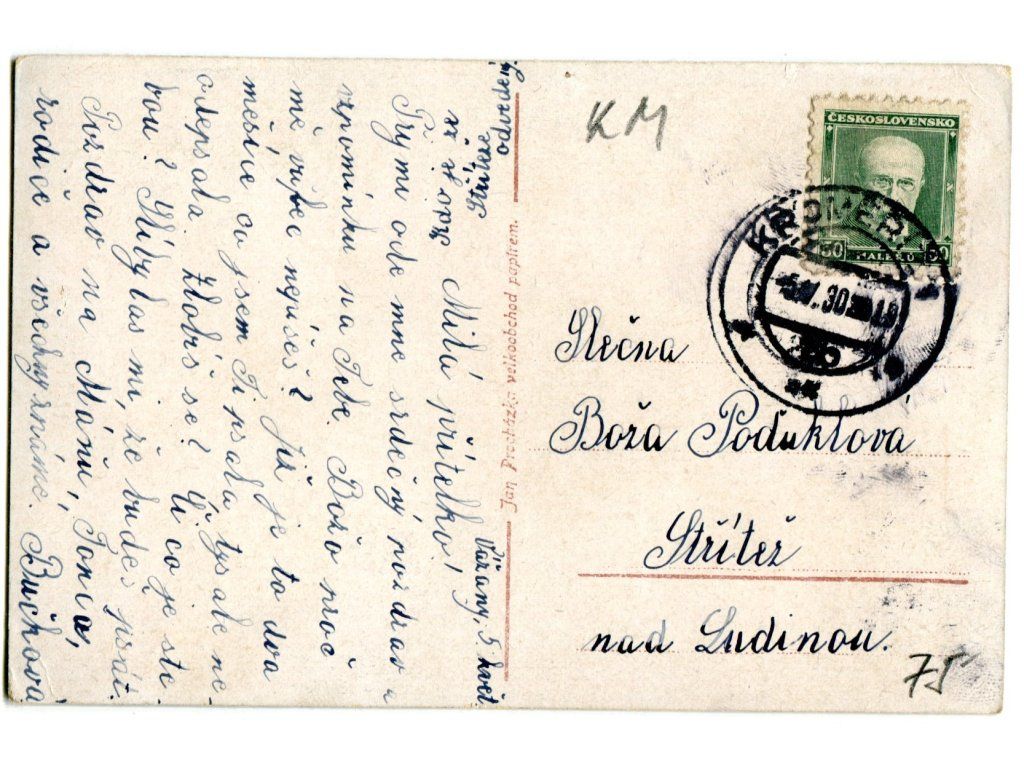 Vážany, 5. květ.
Milá přítelko!
Přijmi ode mne srdečný pozdrav a
vzpomínku na Tebe. Božo proč
mě vůbec nepíšeš? Již je to dva
měsíce co jsem Ti psala tys ale ne-
odepsala. Zlobíš se? Či co je sti
bou? Slíbylas mi, že budeš psát.
Pozdrav na Mánu, Tonču,
rodiče a všechny známé. Bučková
Střítež
odvedený.
Jan Procházka velkoobchod papírem.
KM
ČESKOSLOVENSKO
50 HALÉŘŮ 50
KROMĚŘ
30
Slečna
Boža Poduklová
Střítež
nad Ludinou.
75